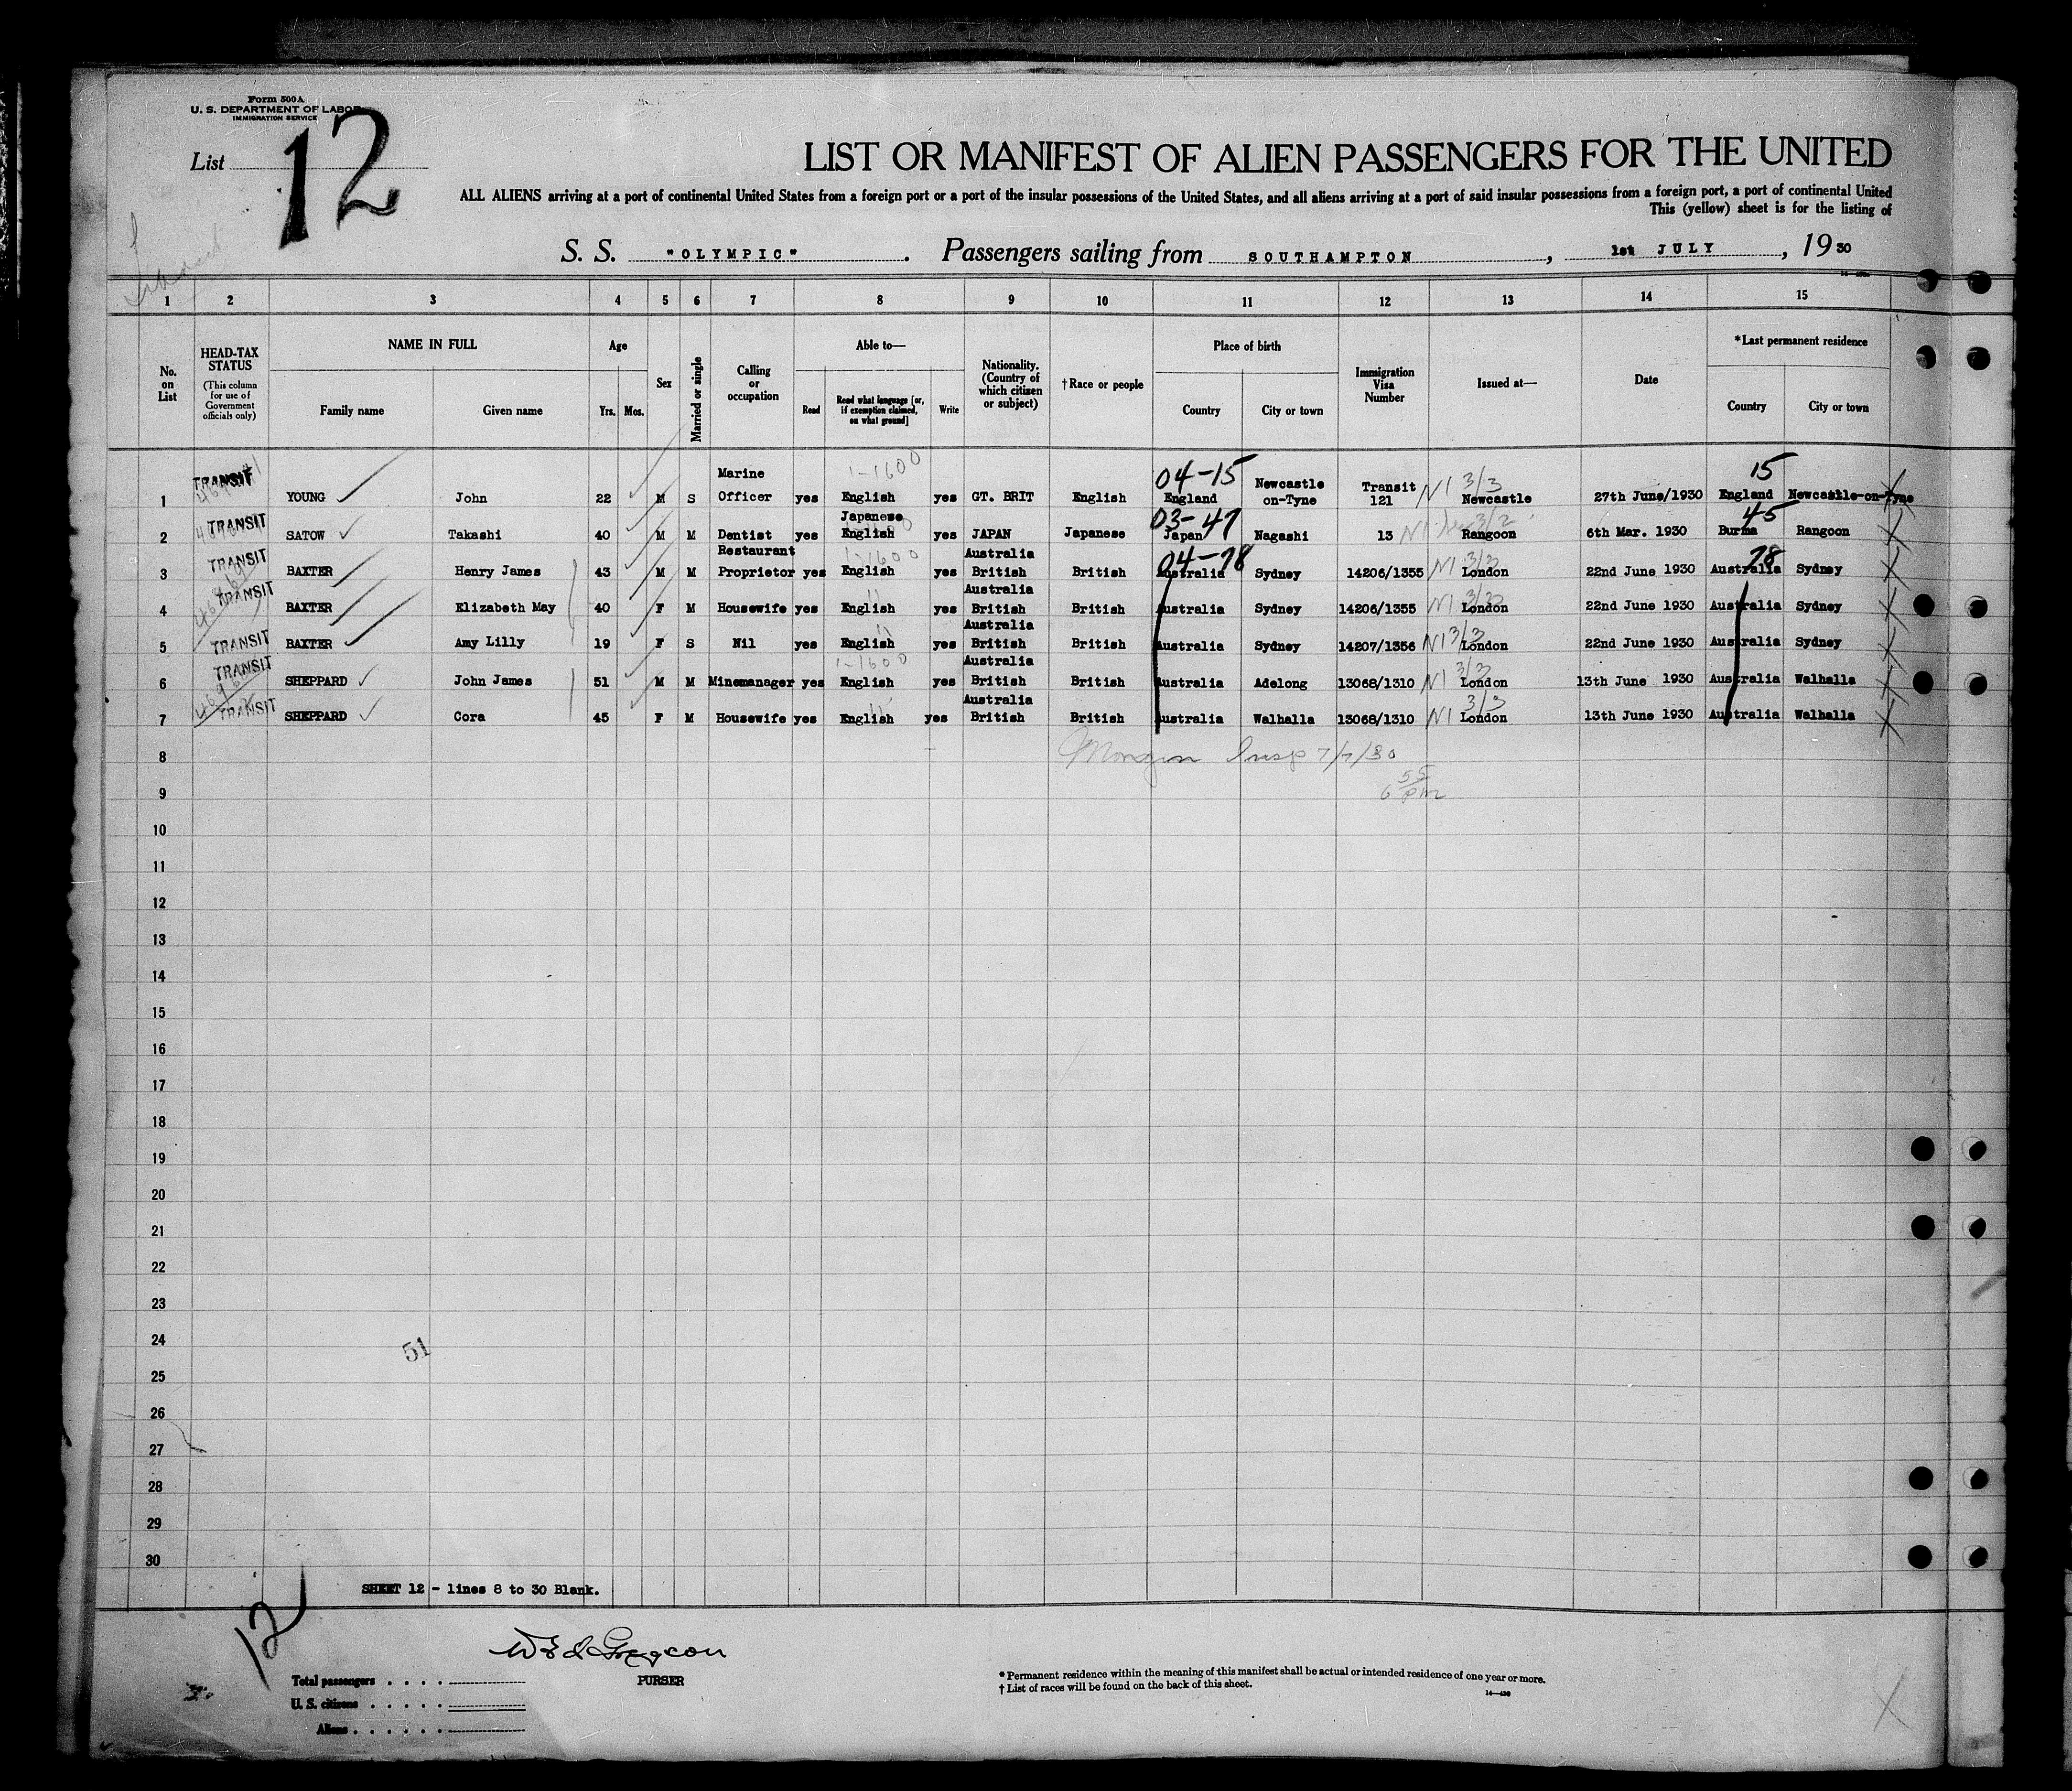 Form 500 A
U. S. DEPARTMENT OF LABOR
IMMIGRATION SERVICE
List 12
LIST OR MANIFEST OF ALIEN PASSENGERS FOR THE UNITED
ALL ALIENS arriving at a port of continental United States from a foreign port or a port of the insular possessions of the United States, and all aliens arriving at a port of said insular possessions from a foreign port, a port of continental United
This (yellow) sheet is for the listing of
S. S. "OLYMPIC". Passengers sailing from SOUTHAMPTON, 1st JULY, 1930
1 2 3 4 5 6 7 8 9 10 11 12 13 14 15
No. on List
HEAD-TAX STATUS
(This column for use of Government officials only)
NAME IN FULL
Family name Given name
Age
Yrs. Mos.
Sex
Married or single
Calling or occupation
Able to—
Read
Read what language [or, if exemption claimed, on what ground]
Write
Nationality. (Country of which citizen or subject)
†Race or people
Place of birth
Country City or town
Immigration Visa Number
Issued at—
Date
*Last permanent residence
Country City or town
1-1600 04-15 3/3 15
1 TRANSIT YOUNG John 22 M S Marine Officer yes English yes GT. BRIT English England Newcastle on-Tyne Transit 121 N1 Newcastle 27th June/1930 England Newcastle-on-Tyne
03-47 3/2 45
2 TRANSIT SATOW Takashi 40 M M Dentist yes Japanese English yes JAPAN Japanese Japan Nagashi 13 Rangoon 6th Mar. 1930 Burma Rangoon
1-1600 04-78 3/3 78
3 TRANSIT BAXTER Henry James 43 M M Restaurant Proprietor yes English yes Australia British British Australia Sydney 14206/1355 N1 London 22nd June 1930 Australia Sydney
4 TRANSIT BAXTER Elizabeth May 40 F M Housewife yes English yes Australia British British Australia Sydney 14206/1355 N1 3/3 London 22nd June 1930 Australia Sydney
5 TRANSIT BAXTER Amy Lilly 19 F S Nil yes English yes Australia British British Australia Sydney 14207/1356 N1 3/3 London 22nd June 1930 Australia Sydney
1-1600
6 TRANSIT SHEPPARD John James 51 M M Minemanager yes English yes Australia British British Australia Adelong 13068/1310 N1 3/3 London 13th June 1930 Australia Walhalla
7 TRANSIT SHEPPARD Cora 45 F M Housewife yes English yes Australia British British Australia Walhalla 13068/1310 N1 3/3 London 13th June 1930 Australia Walhalla
8 Insp 7/7/30
9 6 55 pm
10
11
12
13
14
15
16
17
18
19
20
21
22
23
24
51
25
26
27
28
29
30
SHEET 12 - lines 8 to 30 Blank.
12
PURSER
Total passengers
U. S. citizens
Aliens
* Permanent residence within the meaning of this manifest shall be actual or intended residence of one year or more.
† List of races will be found on the back of this sheet.